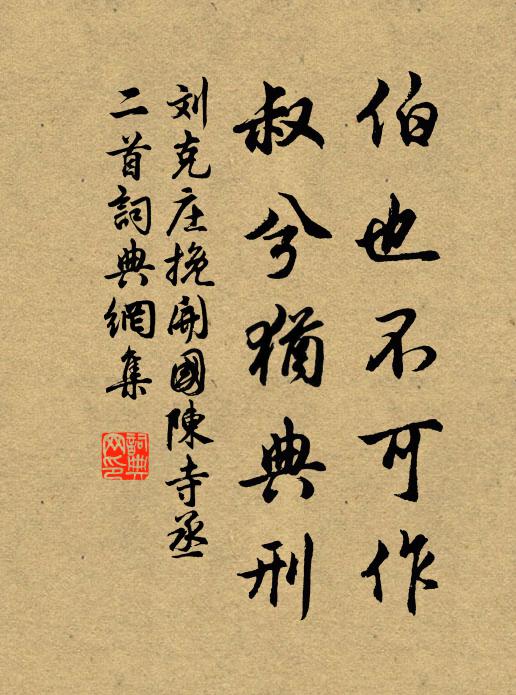 伯也不可作
叔兮猶典刑
刘克庄挽開國陳寺丞
二首詞典網集
詞典
网印